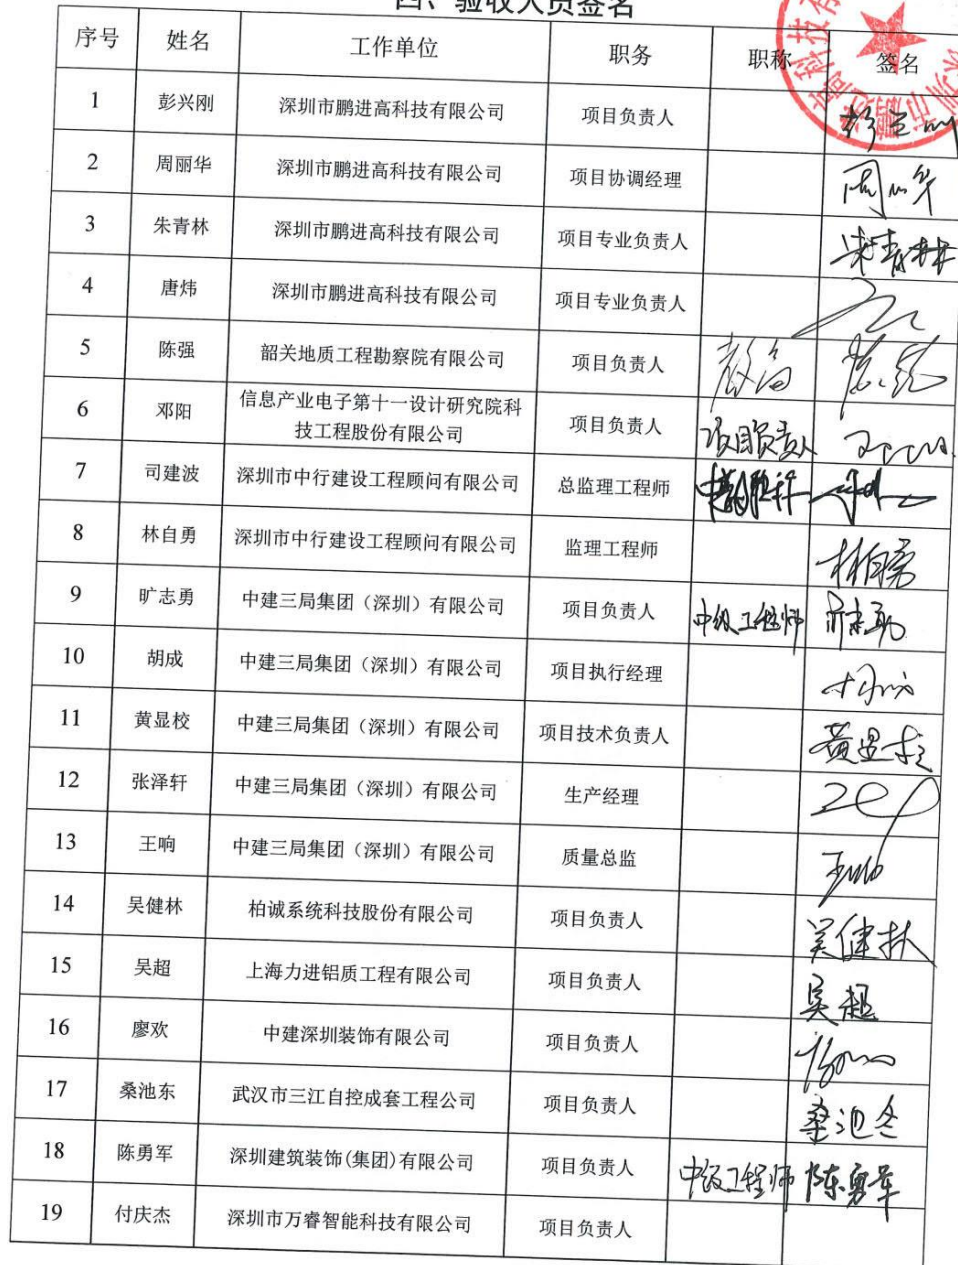 四、验收人员签名
序号 姓名 工作单位 职务 职称 签名
1 彭兴刚 深圳市鹏进高科技有限公司 项目负责人
2 周丽华 深圳市鹏进高科技有限公司 项目协调经理
3 朱青林 深圳市鹏进高科技有限公司 项目专业负责人 朱青林
4 唐炜 深圳市鹏进高科技有限公司 项目专业负责人
5 陈强 韶关地质工程勘察院有限公司 项目负责人
6 邓阳 信息产业电子第十一设计研究院科
技工程股份有限公司 项目负责人 项目负责人
7 司建波 深圳市中行建设工程顾问有限公司 总监理工程师
8 林自勇 深圳市中行建设工程顾问有限公司 监理工程师 林自勇
9 旷志勇 中建三局集团（深圳）有限公司 项目负责人 中级工程师
10 胡成 中建三局集团（深圳）有限公司 项目执行经理
11 黄显校 中建三局集团（深圳）有限公司 项目技术负责人 黄显校
12 张泽轩 中建三局集团（深圳）有限公司 生产经理
13 王响 中建三局集团（深圳）有限公司 质量总监
14 吴健林 柏诚系统科技股份有限公司 项目负责人 吴健林
15 吴超 上海力进铝质工程有限公司 项目负责人 吴超
16 廖欢 中建深圳装饰有限公司 项目负责人
17 桑池东 武汉市三江自控成套工程公司 项目负责人 桑池东
18 陈勇军 深圳建筑装饰(集团)有限公司 项目负责人 中级工程师 陈勇军
19 付庆杰 深圳市万睿智能科技有限公司 项目负责人